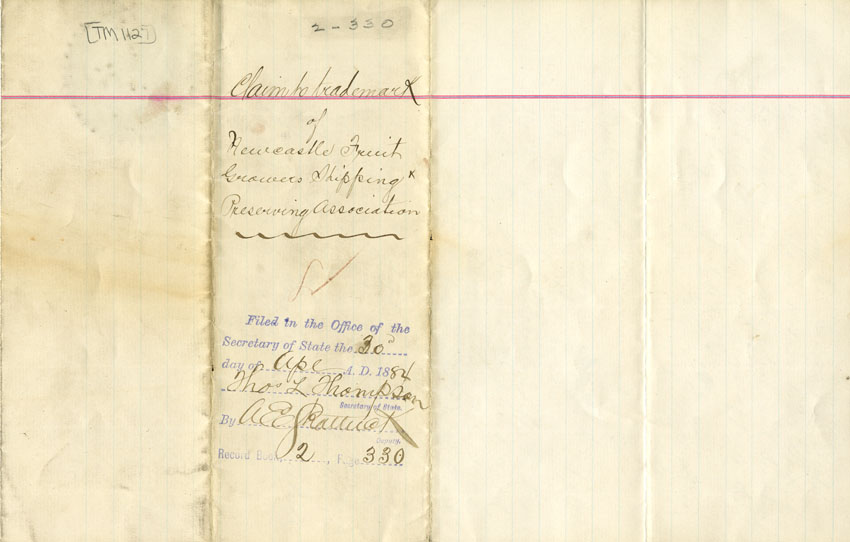 [TM 1127]
2-330
Claim to trademark
of
Newcastle Fruit
Growers Shipping &
Preserving Association
Filed in the Office of the
Secretary of State the 30th
day of Apl A. D. 1884
Thos L Thompson
Secretary of State.
By A E
Deputy.
Record Book 2, Page 330